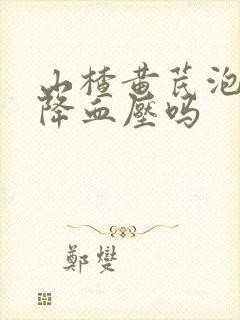 山楂黄芪泡
降血壓吗
鄭燮